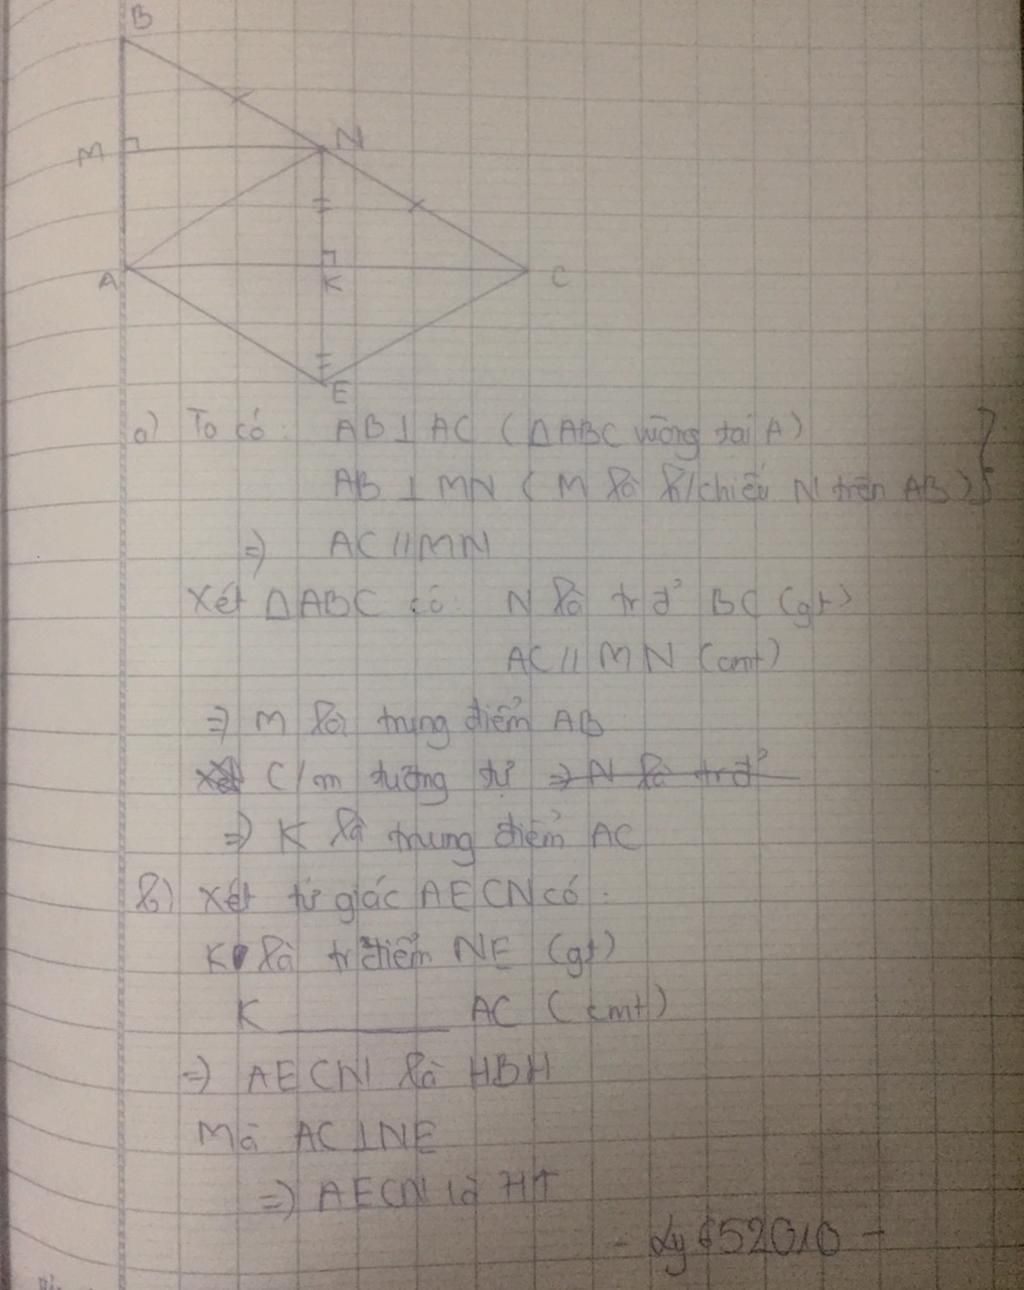 B
M
N
A
K
C
E
a) Ta có: AB ⊥ AC (ΔABC vuông tại A)
AB ⊥ MN (M là h/chiếu N trên AB)
=) AC // MN
Xét ΔABC có: N là trđ² BC (gt)
AC // MN (cmt)
=) M là trung điểm AB
C/m tương tự =) N là trđ²
=) K là trung điểm AC
b) Xét tứ giác AECN có:
K là tr điểm NE (gt)
K ________ AC (cmt)
=) AECN là HBH
Mà AC ⊥ NE
=) AECN là HT